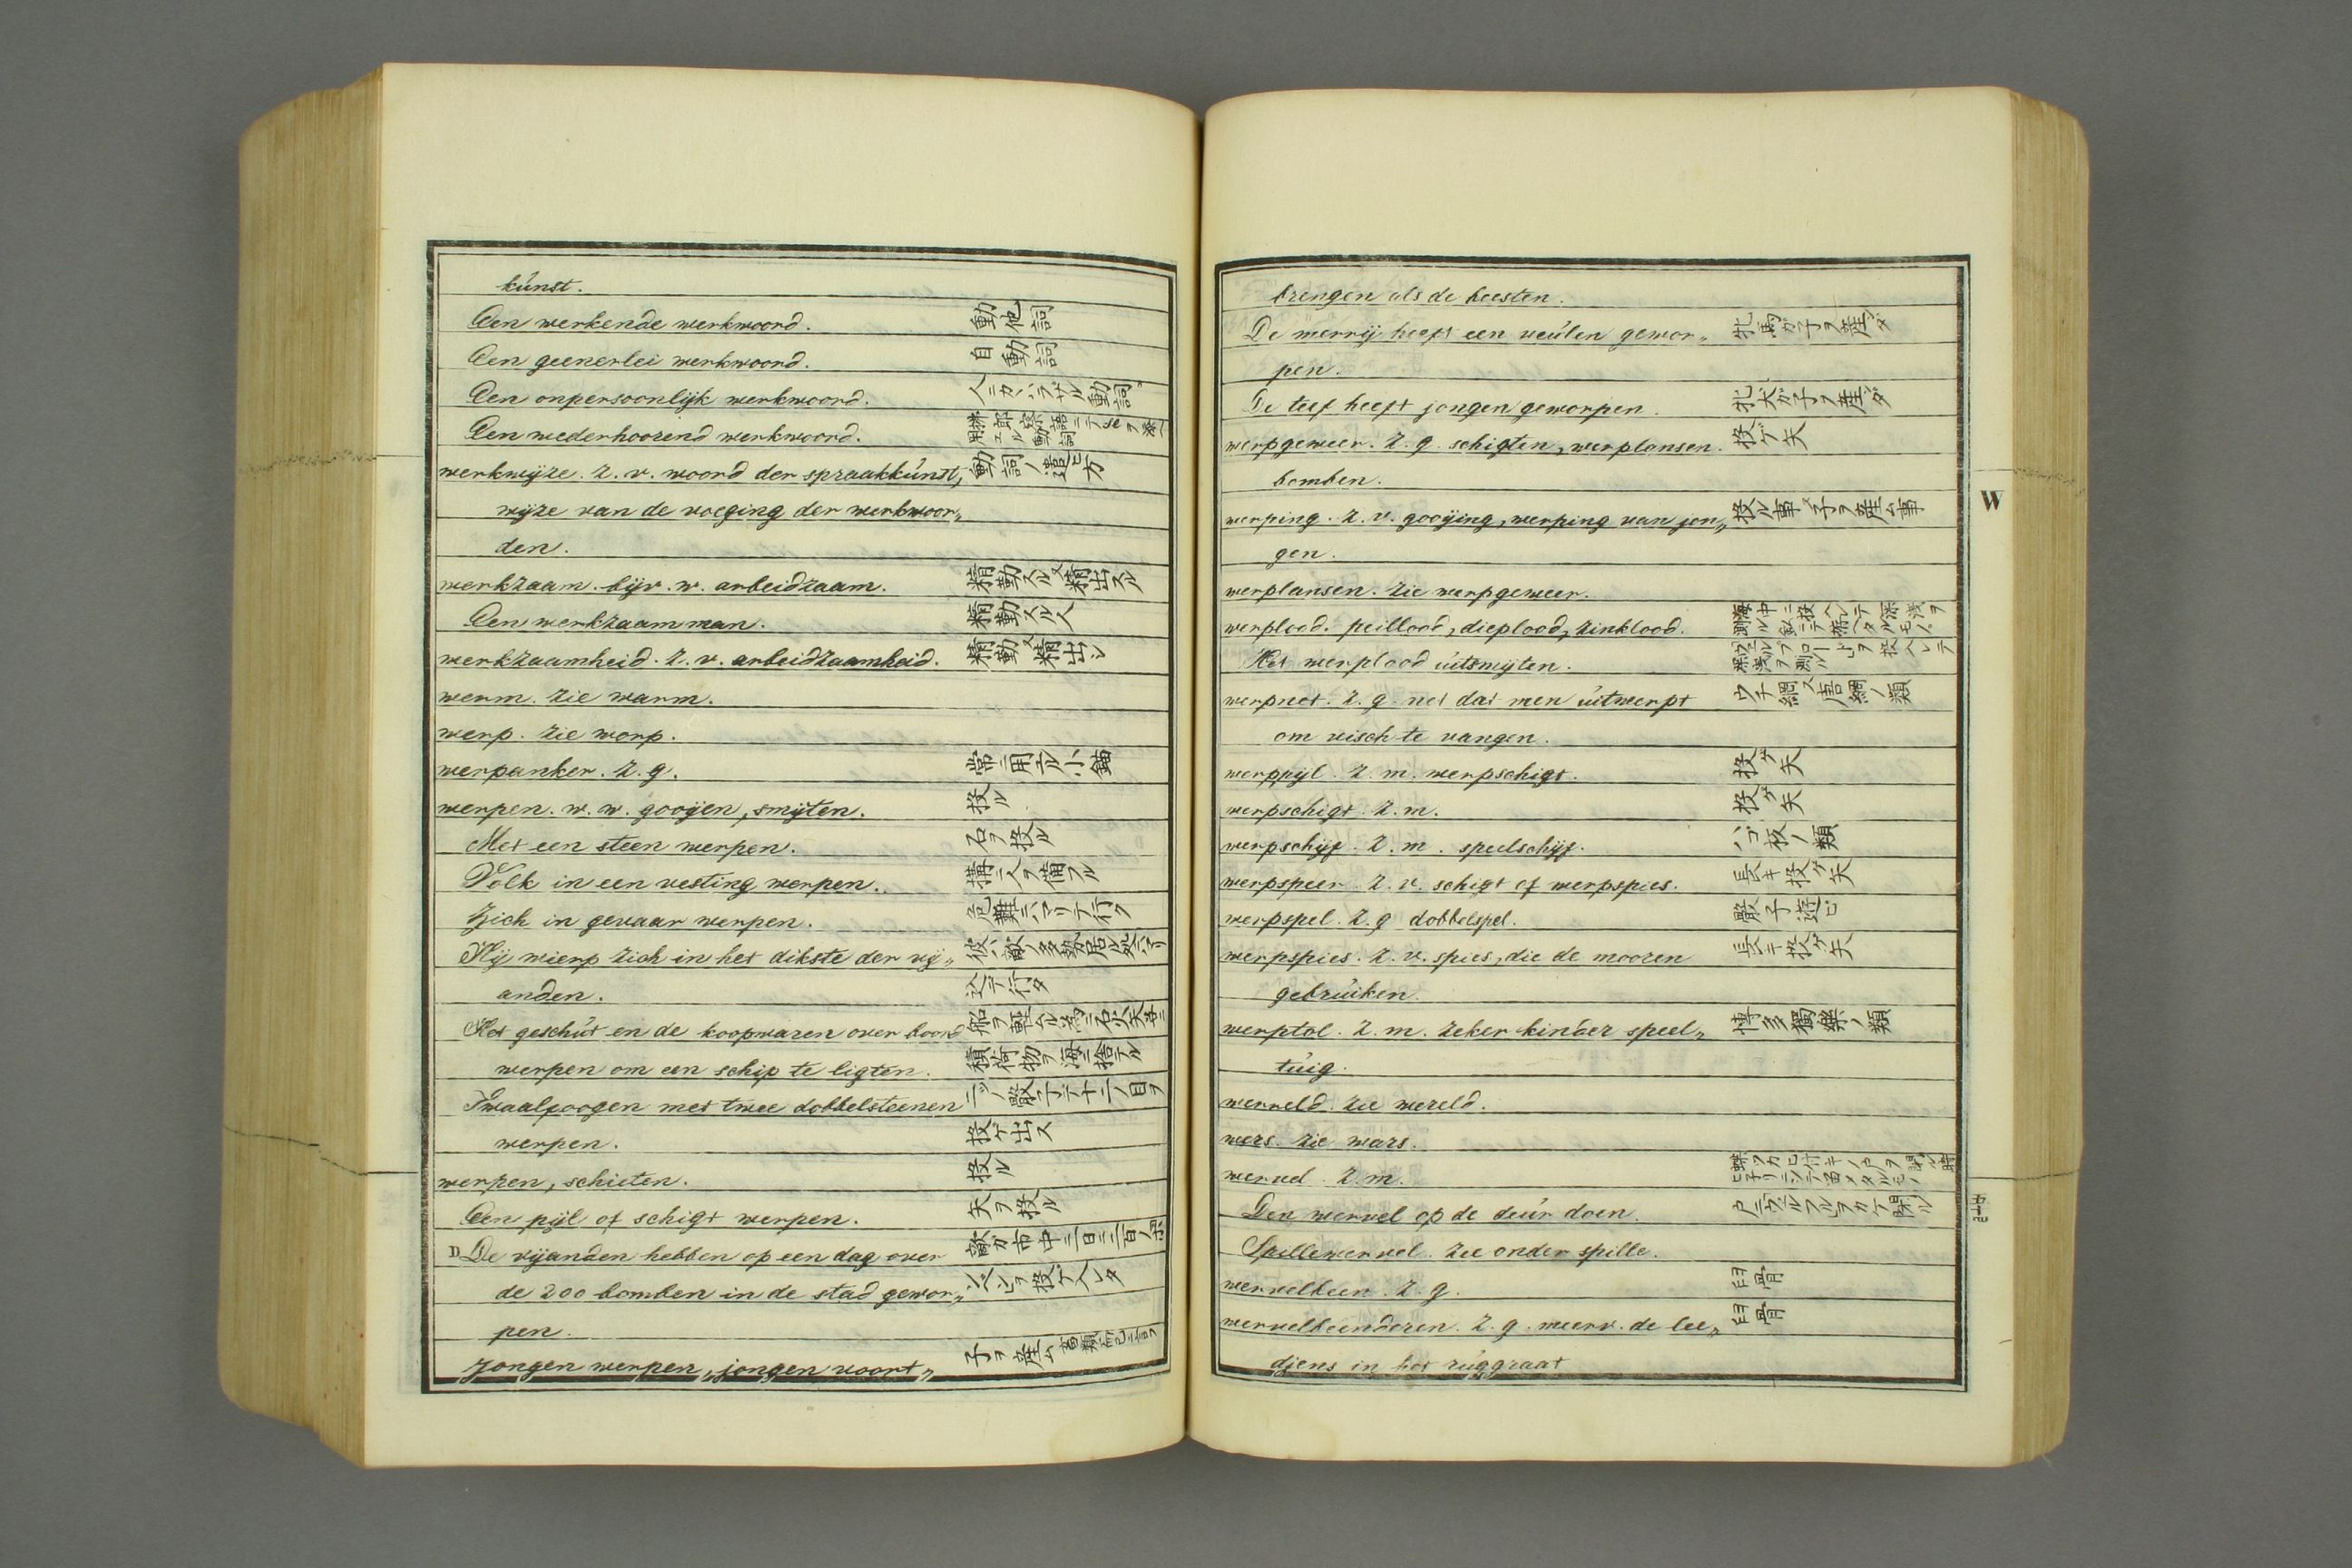 kúnst.
Een werkende werkwoord. 動他詞
Een geenerlei werkwoord. 自動詞
Een onpersoonlijk werkwoord. 人ニカヽハラザル動詞
Een wederhoorend werkwoord.
werkwijze. z. v. woord der spraakkúnst, 動詞ノ遣ヒ方
wijze van de voeging der werkwoor„
den.
werkzaam. bijv. w. arbeidzaam. 精勤スル又精出スル
Een werkzaam man. 精勤スル人
werkzaamheid. z. v. arbeidzaamheid. 精勤又精出シ
werm. zie warm.
werp. zie worp.
werpanker. z. g. 常ニ用フル小錨
werpen. w. w. gooijen, smijten. 投ル
Met een steen werpen. 石ヲ投ル
Volk in een vesting werpen. 搆ニ人ヲ備フル
Zich in gevaar werpen. 危難ニハマリテ行ク
Hij wierp zich in het dikste der vij„ 彼ハ敵ノ多勢居ル処ニハマリ
anden. 込テ行タ
Het geschút en de koopwaren over boord 船ヲ軽ムル為ニ石火矢并ニ
werpen om een schip te ligten. 積荷物ヲ海ニ捨テル
Twaalf oogen met twee dobbelsteenen 二ツノ骰子デ十二ノ目ヲ
werpen. 投ゲ出ス
werpen, schieten. 投ル
Een pijl of schigt werpen. 矢ヲ投ル
D De vijanden hebben op een dag over 敵ガ市中ニ一日ニ二百ノボ
de 200 bomben in de stad gewor„ ンベンヲ投ゲ入レタ
pen.
Jongen werpen, jongen voort„ 子ヲ産ム
brengen als de beesten.
De merrij heeft een veúlen gewor„ 牝馬ガ子ヲ産ンダ
pen.
De teef heeft jongen geworpen. 牝犬ガ子ヲ産ンダ
werpgeweer. z. g. schigten, werplansen. 投ゲ矢
bomben.
werping. z. v. gooijing, werping van jon„ 投ル事又子ヲ産ム事
gen.
werplansen. zie werpgeweer.
werplood. peillood, dieplood, zinklood. 海中ニ投入レテ深浅ヲ
測ル鉛ニテ拵ヘタルモノ
Het werplood úitsmijten. 投入レテ
深浅ヲ測ル
werpnet. z. g. net dat men úitwerpt ウチ網又唐網ノ類
om visch te vangen.
werppijl. z. m. werpschigt. 投ゲ矢
werpschigt. z. m. 投ゲ矢
werpschijf. z. m. speelschijf. ハゴ板ノ類
werpspeer. z. v. schigt of werpspies. 長キ投ゲ矢
werpspel. z. g dobbelspel. 骰子遊ビ
werpspies. z. v. spies, die de mooren 長キ投ゲ矢
gebrúiken.
werptol. z. m. zeker kinder speel„ 博多獨樂ノ類
túig.
werreld. zie wereld.
wers. zie wars.
wervel. z. m.
Den wervel op de deúr doen. 戸ニウェルフルヲカケ閉ル
Spillewervel. zie onder spille.
wervelbeen. z. g. 臼骨
wervelbeenderen. z. g. meerv. de lee„ 臼骨
djens in het rúggraat
W